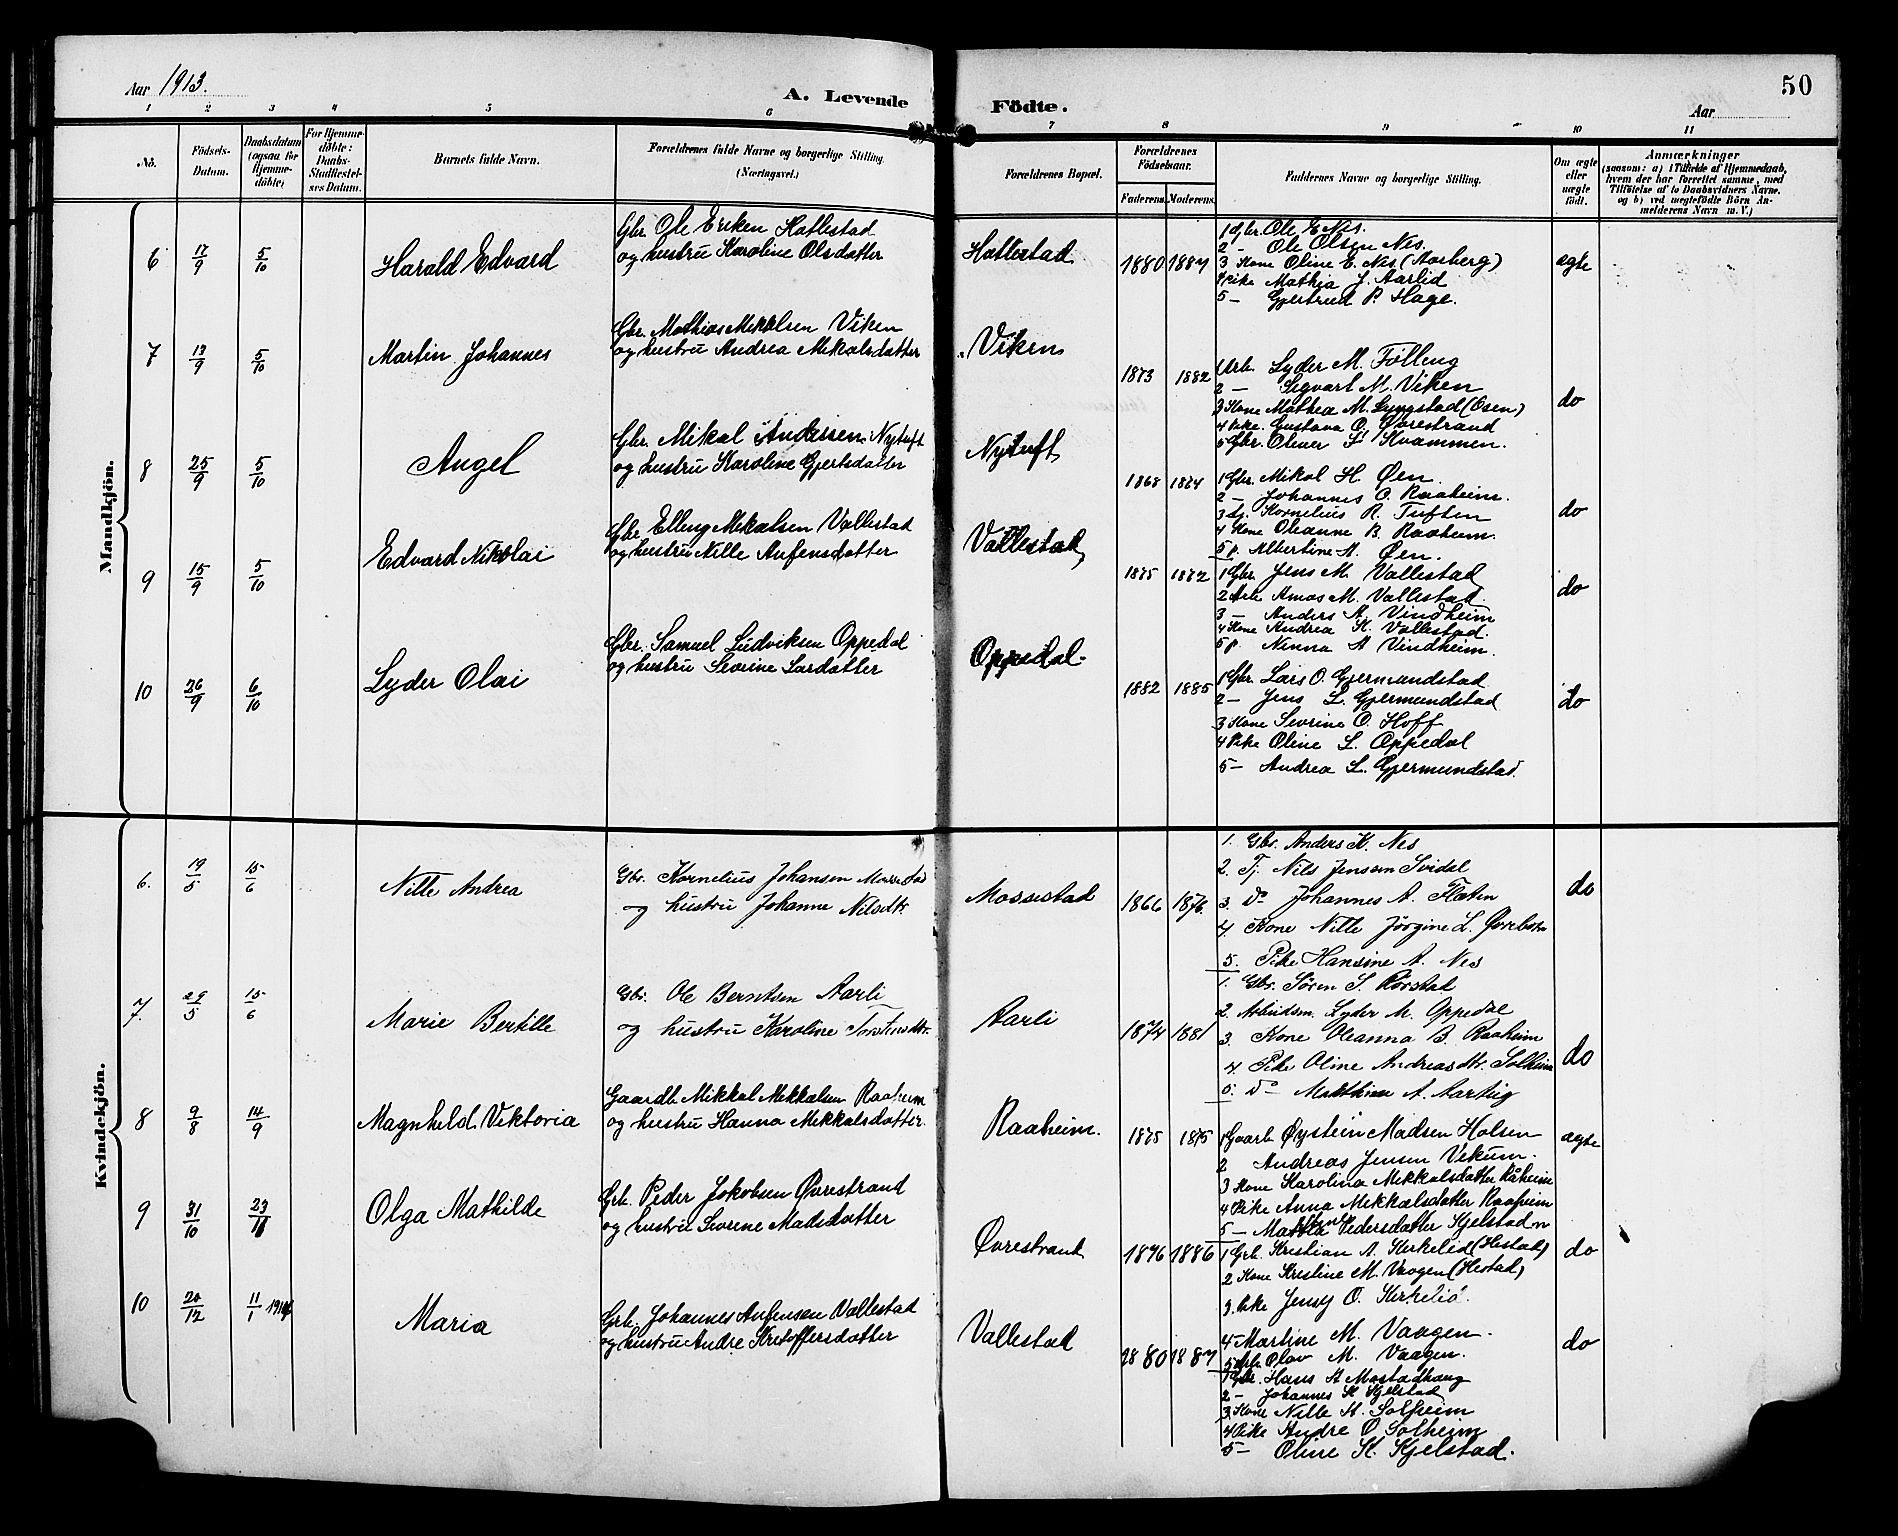 Aar 1913.
A. Levende Födte.
Aar
50
1 2 3 4 5 6 7 8 9 10 11
No.
Födsels-Datum.
Daabsdatum (ogsaa for Hjemmedöbte)
For Hjemmedöbte: Daabs-Stadfæstelses Datum.
Barnets fulde Navn.
Forældrenes fulde Navne og borgerlige Stilling. (Næringsvei.)
Forældrenes Bopæl.
Forældrenes Födselsaar.
Faderens. Moderens.
Faddernes Navne og borgerlige Stilling.
Om ægte eller uægte födt.
Anmærkninger
(saasom: a) i Tilfælde af Hjemmedaab, hvem der har forrettet samme, med Tilföielse af to Daabsvidners Navne. og b) ved uægtefödte Börn Anmelderens Navn m. V.)
Mandkjön.
6 17/9 5/10 Harald Edvard
Gbr. Ole Eriken Hatlestad
og hustru Karoline Olsdatter
Hatlestad 1880 1887
1 Gbr. Ole E. Nes.
2 - Ole Olsen Nes.
3 Kone Oline E. Nes (Aarberg)
4 Pike Mathia J. Aarlid
5 - Gjertrud P. Hage.
ægte
7 13/9 5/10 Martin Johannes
Gbr. Mathias Mikkelsen Viken
og hustru Andrea Mikalsdatter
Viken 1873 1882
1 Arb. Lyder M. Følleng
2 - Sigvart M. Viken
3 Kone Mathea M. Lyngstad (Osen)
4 Pike. Gustava O. Øvrestrand
5 Gbr. Oliver S. Kvammen.
do
8 25/9 5/10 Angel
Gbr. Mikal Andersen Nytuft
og hustru Karoline Gjertsdatter
Nytuft 1868 1874
1 Gbr. Mikal H. Øen.
2 - Johannes O. Raaheim.
3 Tj. Kornelius R. Tuften
4 Kone Oleanne B. Raaheim.
5 p. Albertine A. Øen.
do
9 15/9 5/10 Edvard Nikolai
Gbr. Elleng Mikalsen Vallestad
og hustru Nille Anfensdatter
Vallestad 1875 1872
1 Gbr. Jens M. Vallestad
2 Arb Amas M. Vallestad.
3 - Anders A. Vindheim
4 Kone Andrea K. Vallestad.
5 p. Ninna A Vindheim.
do
10 26/9 6/10 Lyder Olai
Gbr. Samuel Ludviksen Oppedal
og hustru Severine Larsdatter
Oppedal- 1882 1885
1 Gbr. Lars O. Gjermundstad
2 - Jens L. Gjermundstad
3 Kone Sevrine O. Hoff
4 Pike Oline L. Oppedal
5 - Andrea L. Gjermundstad.
do
Kvindekjön.
6. 19/5 15/6 Nille Andrea
Gbr. Kornelius Johansen
og hustru Johanne Nilsdtr.
Massestad 1866 1876.
1. Gbr. Anders K. Nes
2. Tj. Nils Jensen Svidal
3. Do Johannes A. Flæten
4. Kone Nille Jørgine L.
5. Pike Hansine A. Nes
do
7. 29/5 15/6 Marie Bertille
Gbr. Ole Berntsen Aarli
og hustru Karoline
Aarli 1874 1881
1. Gbr. Søren S. Rørstad
2. Arbeidsm. Lyder M. Oppedal
3. Kone Oleanna B. Raaheim
4 Pike Oline Andreasdtr. Solheim
5. Do A.
do
8 9/8 14/9 Magnhild Viktoria
Gaardb. Mikkal Mikkalsen Raaheim
og hustru Hanna Mikkalsdatter.
Raaheim. 1875 1875
1 Gaarb. Øystein Madsen Holsen
2 Andreas Jensen Vekum.
3 Kone Karolina Mikkalsdatter Råheim
4 Pike Anna Mikkalsdatter Raaheim
5 - Pedersdatter Kjelstad
ægte
9 31/10 23/11 Olga Mathilde
Grb. Peder Jakobsen Øvrestrand
og hustru Severine Madsdatter
Øvrestrand 1876 1886
1 Grb. Kristian A. Kirkelid (Hestad)
2 Kone Kristine M. Vaagen (Hestad)
3. Pike Jensy O. Kirkelid.
4 - Martine M. Vaagen.
5 Arb. Olav M. Vaagen.
do
10 20/12 11/1 1914 Maria
Grb. Johannes Anfensen Vallestad
og hustru Andre Kristoffersdatter
Vallestad 1880 1887
1 Gbr. Hans A Mostadhaug
2 - Johannes K Kjelstad
3 Kone Nille H. Solheim
4 Pike Andre O. Solheim
5 - Oline K. Kjelstad.
do